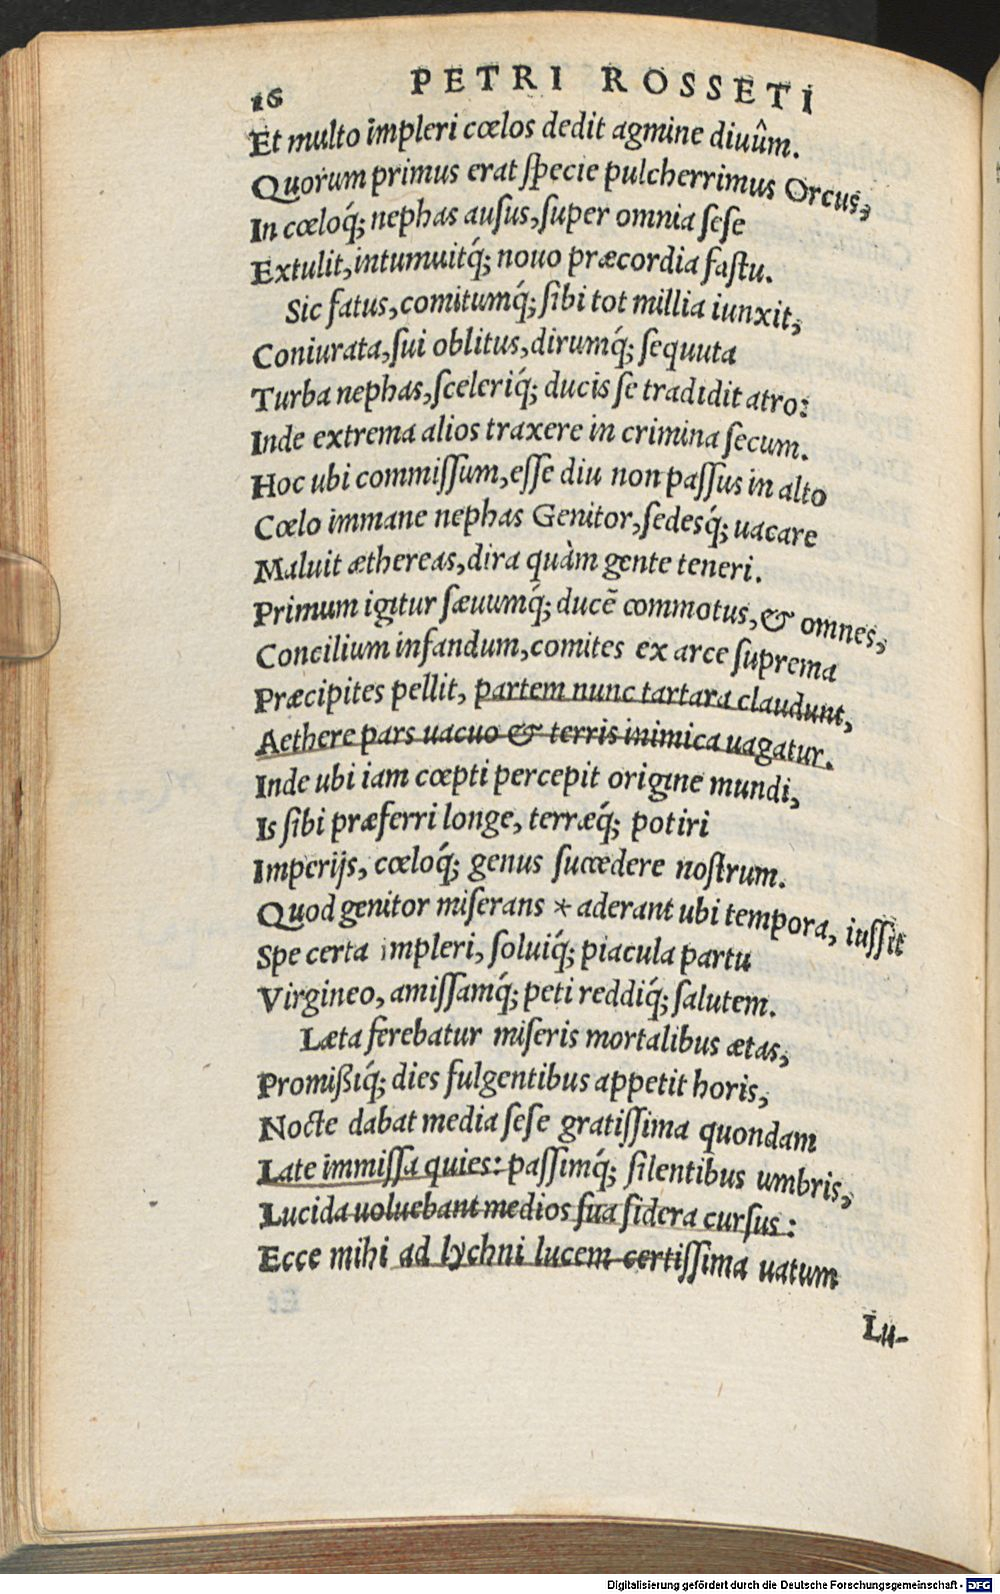 16 PETRI ROSSETI
Et multo impleri cœlos dedit agmine diuûm.
Quorum primus erat ſpecie pulcherrimus Orcus,
In cœloq́; nephas auſus, ſuper omnia ſeſe
Extulit, intumuitq́; nouo præcordia faſtu.
Sic fatus, comitumq́; ſibi tot millia iunxit,
Coniurata, ſui oblitus, dirumq́; ſequuta
Turba nephas, ſceleriq́; ducis ſe tradidit atro:
Inde extrema alios traxere in crimina ſecum.
Hoc ubi commiſſum, eſſe diu non paſſus in alto
Cœlo immane nephas Genitor, ſedesq́; uacare
Maluit æthereas, dira quàm gente teneri.
Primum igitur ſæuumq́; ducẽ commotus, & omnes,
Concilium infandum, comites ex arce ſuprema
Præcipites pellit, partem nunc tartara claudunt,
Aethere pars uacuo & terris inimica uagatur.
Inde ubi iam cœpti percepit origine mundi,
Is ſibi præferri longe, terræq́; potiri
Imperijs, cœloq́; genus ſuccedere noſtrum.
Quod genitor miſerans * aderant ubi tempora, iuſſit
Spe certa impleri, ſoluiq́; piacula partu
Virgineo, amiſſamq́; peti reddiq́; ſalutem.
Læta ferebatur miſeris mortalibus ætas,
Promißiq́; dies fulgentibus appetit horis,
Nocte dabat media ſeſe gratiſſima quondam
Late immiſſa quies: paſſimq́; ſilentibus umbris,
Lucida uoluebant medios ſua ſidera curſus:
Ecce mihi ad lychni lucem certiſſima uatum
Lu-
Digitalisierung gefördert durch die Deutsche Forschungsgemeinschaft - DFG